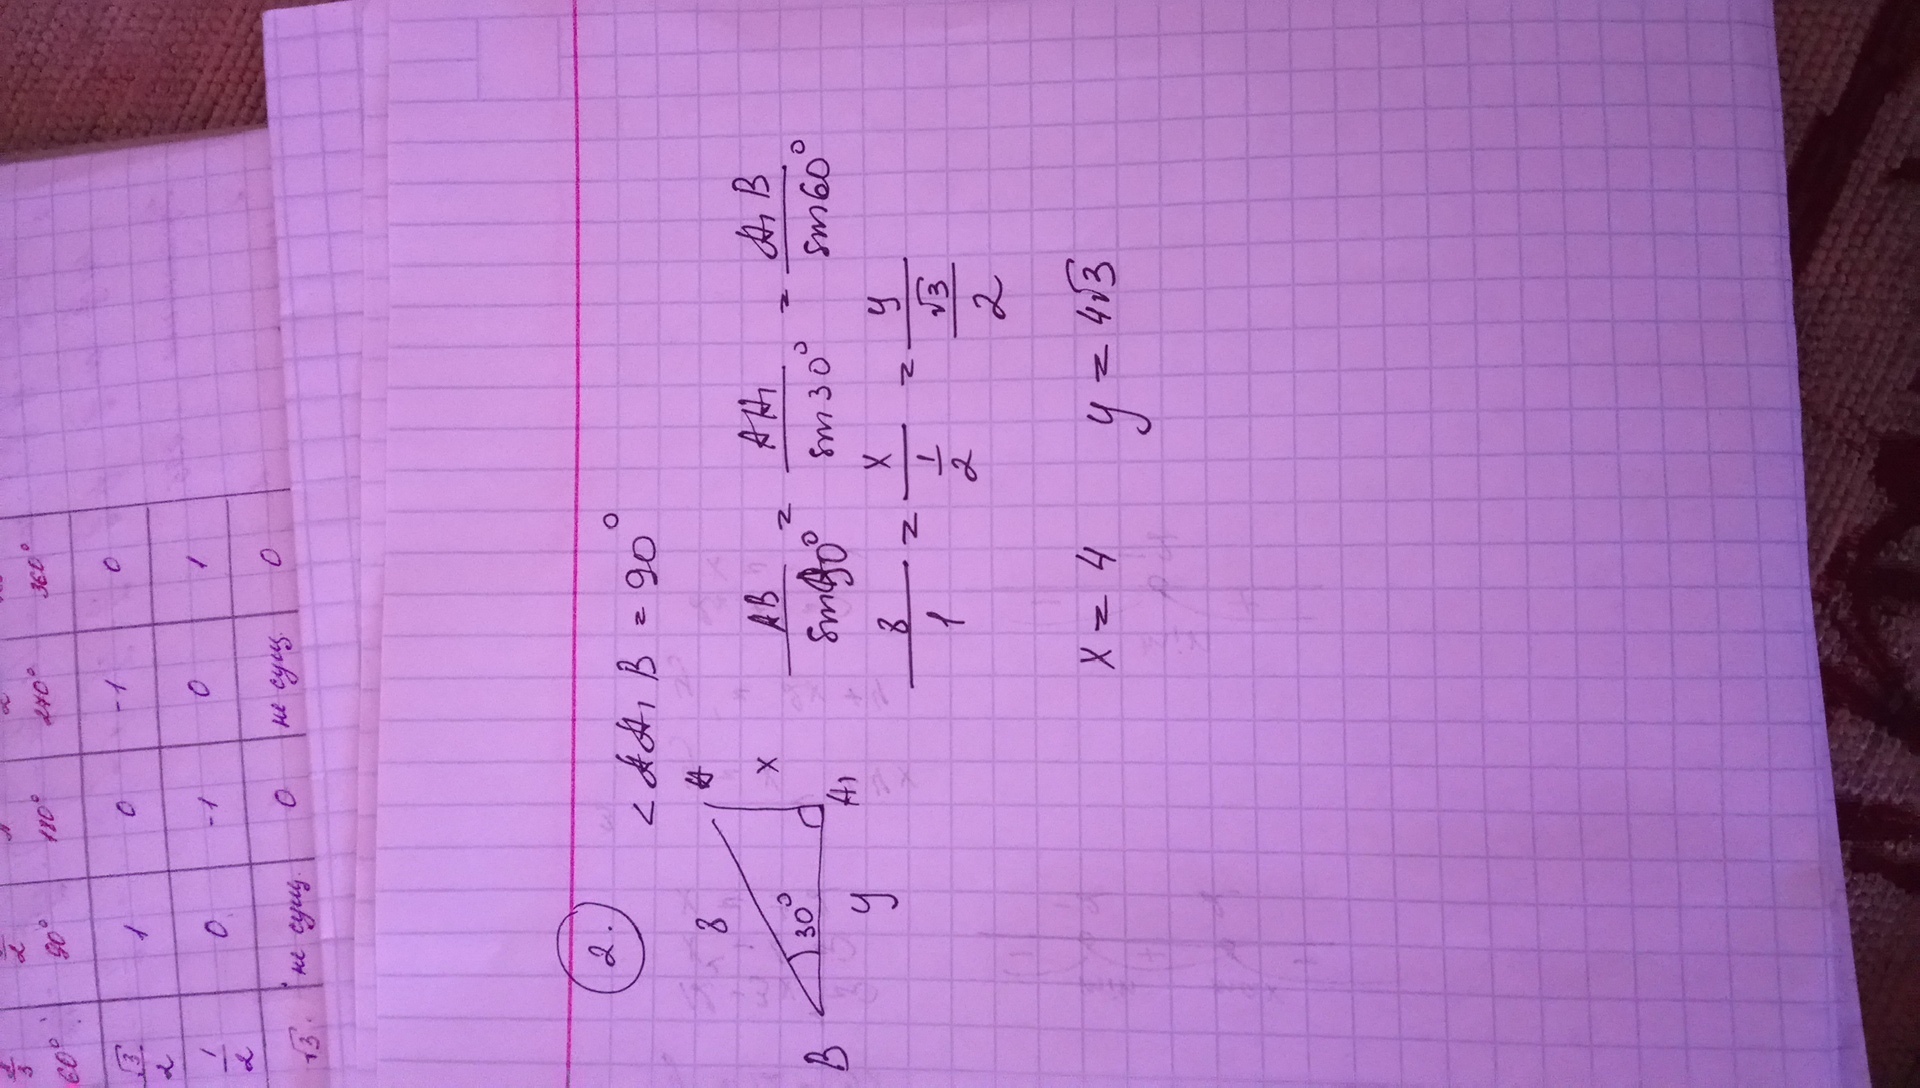 π/3 π/2 π 360°
60° 90° 180° 270° 360°
√3/2 1 0 -1 0
1/2 0 -1 0 1
√3 не сущ. 0 не сущ. 0
2. <AA₁B = 90°
A
8 x
30°
B y A₁
AB/sin90° = AA₁/sin30° = A₁B/sin60°
8/1 = x/(1/2) = y/(√3/2)
x = 4 y = 4√3